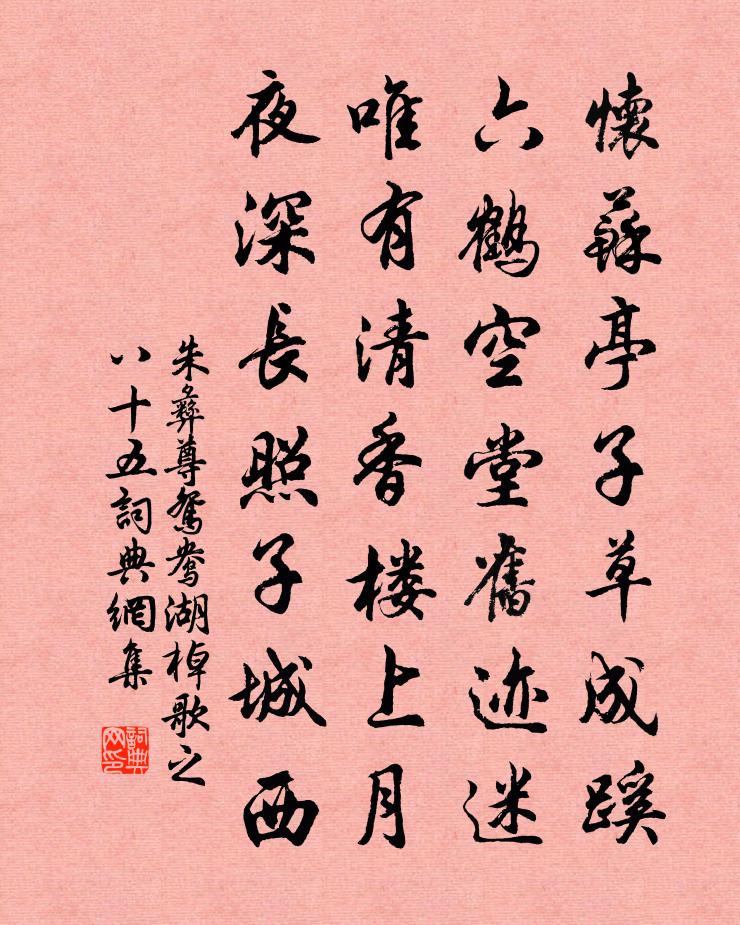 懷蘇亭子草成蹊
六鶴空堂舊迹迷
唯有清香楼上月
夜深長照子城西
朱彝尊鴛鴦湖棹歌之
八十五詞典網集
詞典
网印